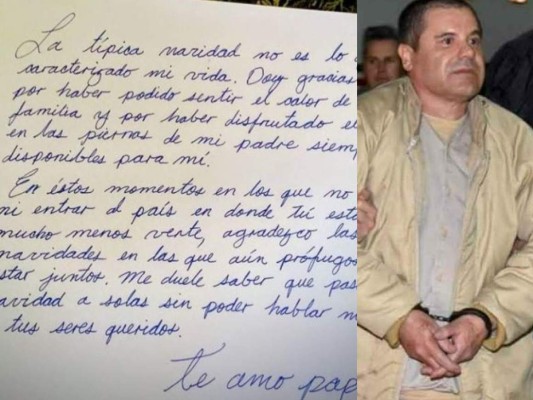 La típica navidad no es lo
caracterizado mi vida. Doy gracias
por haber podido sentir el calor de
familia y por haber disfrutado el
en las piernas de mi padre siem
disponibles para mí.
En éstos momentos en los que no
ni entrar al país en donde tú est
mucho menos verte, agradezco las
navidades en las que aún prófugos
star juntos. Me duele saber que pas
avidad a solas sin poder hablar n
tus seres queridos.
te amo pap